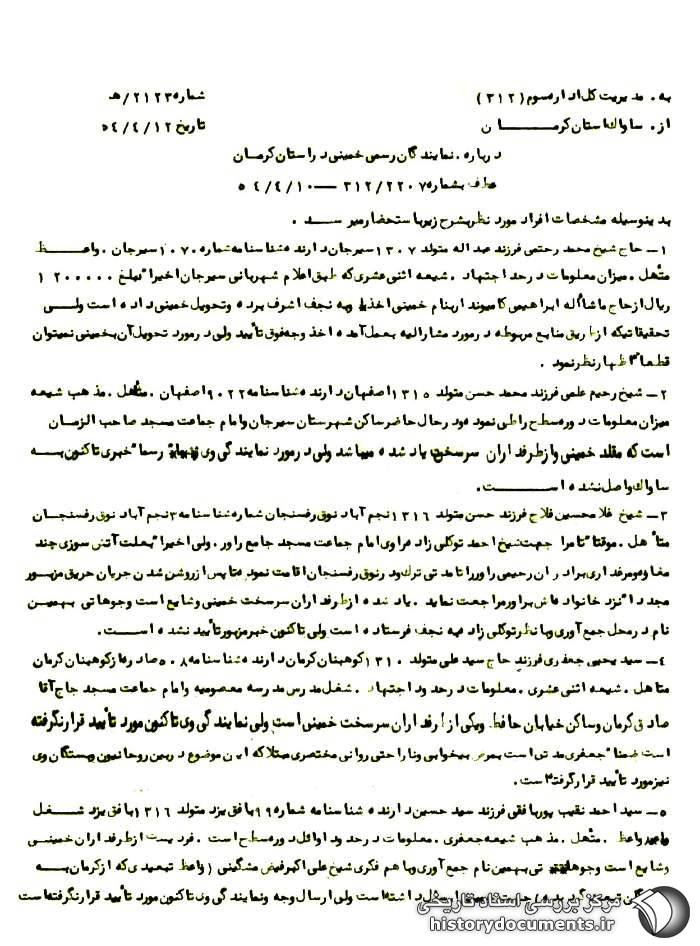 به . مدیریت کل اداره سوم (۳۱۲) شماره ۲۱۲۳/هـ
از . ساواک استان کرمان تاریخ ۵۴/۴/۱۲
درباره . نمایندگان رسمی خمینی در استان کرمان
عطف بشماره ۳۱۲/۲۲۰۷ — ۵۴/۴/۱۰
بدینوسیله مشخصات افراد مورد نظر بشرح زیر باستحضار میرسد .
۱ـ حاج شیخ محمد رحتمی فرزند عبداله متولد ۱۳۰۷ سیرجان دارنده شناسنامه شماره ۱۰۷۰ سیرجان . واعظ
متأهل . میزان معلومات در حد اجتهاد . شیعه اثنی عشری که طبق اعلام شهربانی سیرجان اخیرا" مبلغ ۱۲۰۰۰۰۰
ریال از حاج ماشااله ابراهیمی کامیوندار بنام خمینی اخذ و به نجف اشرف برده و تحویل خمینی داده است ولی
تحقیقاتیکه از طریق منابع مربوطه در مورد مشارالیه بعمل آمده اخذ وجه فوق تأیید ولی در مورد تحویل آن بخمینی نمیتوان
قطعا" اظهار نظر نمود .
۲ـ شیخ رحیم علمی فرزند محمد حسن متولد ۱۳۱۵ اصفهان دارنده شناسنامه ۹۰۲۲ اصفهان . متأهل . مذهب شیعه
میزان معلومات دوره سطح را طی نموده در حال حاضر ساکن شهرستان سیرجان و امام جماعت مسجد صاحب الزمان
است که مقلد خمینی و از طرفداران سرسخت یاد شده میباشد ولی در مورد نمایندگی وی رسما" خبری تاکنون به
ساواک واصل نشده است.
۳ـ شیخ غلامحسین فلاح فرزند حسن متولد ۱۳۱۶ نجم آباد نوق رفسنجان شماره شناسنامه ۳ نجم آباد نوق رفسنجان
متأهل . موقتا" تا مراجعت شیخ احمد توکلی زاده راوی امام جماعت مسجد جامع راور . ولی اخیرا" بعلت آتش سوزی چند
مغازه و طرفداری برادران رحیمی راور را تا مدتی ترک و در نوق رفسنجان اقامت نموده تا پس از روشن شدن جریان حریق مزبور
مجددا" نزد خانواده اش براور مراجعت نماید . یاد شده از طرفداران سرسخت خمینی و شایع است وجوهاتی بهمین
نام در محل جمع آوری و با نظر توکلی زاده به نجف فرستاده است ولی تاکنون خبر مزبور تأیید نشده است.
۴ـ سید یحیی جعفری فرزند حاج سید علی متولد ۱۳۱۰ کوهبنان کرمان دارنده شناسنامه ۵۰۸ صادره از کوهبنان کرمان
متاهل . شیعه اثنی عشری . معلومات در حدود اجتهاد . شغل مدرس مدرسه معصومیه و امام جماعت مسجد حاج آقا
صادق کرمان و ساکن خیابان حافظ و یکی از طرفداران سرسخت خمینی است ولی نمایندگی وی تاکنون مورد تأیید قرار نگرفته
است ضمنا" جعفری مدتی است بمرض بیخوابی و ناراحتی روانی مختصری مبتلا که این موضوع در بین روحانیون و بستگان وی
نیز مورد تأیید قرار گرفته است.
۵ـ سید احمد نقیب پور بافقی فرزند سید حسین دارنده شناسنامه شماره ۹۹ بافق یزد متولد ۱۳۱۶ بافق یزد شغل
واعظ . متأهل . مذهب شیعه جعفری . معلومات در حدود اوائل دوره سطح است . فردیست از طرفداران خمینی
و شایع است وجوهاتی بهمین نام جمع آوری و با هم فکری شیخ علی اکبر فیض مشگینی (واعظ تبعیدی که از کرمان به
داشته است ولی ارسال وجه و نمایندگی وی تاکنون مورد تأیید قرار نگرفته است
مرکز بررسی اسناد تاریخی
historydocuments.ir